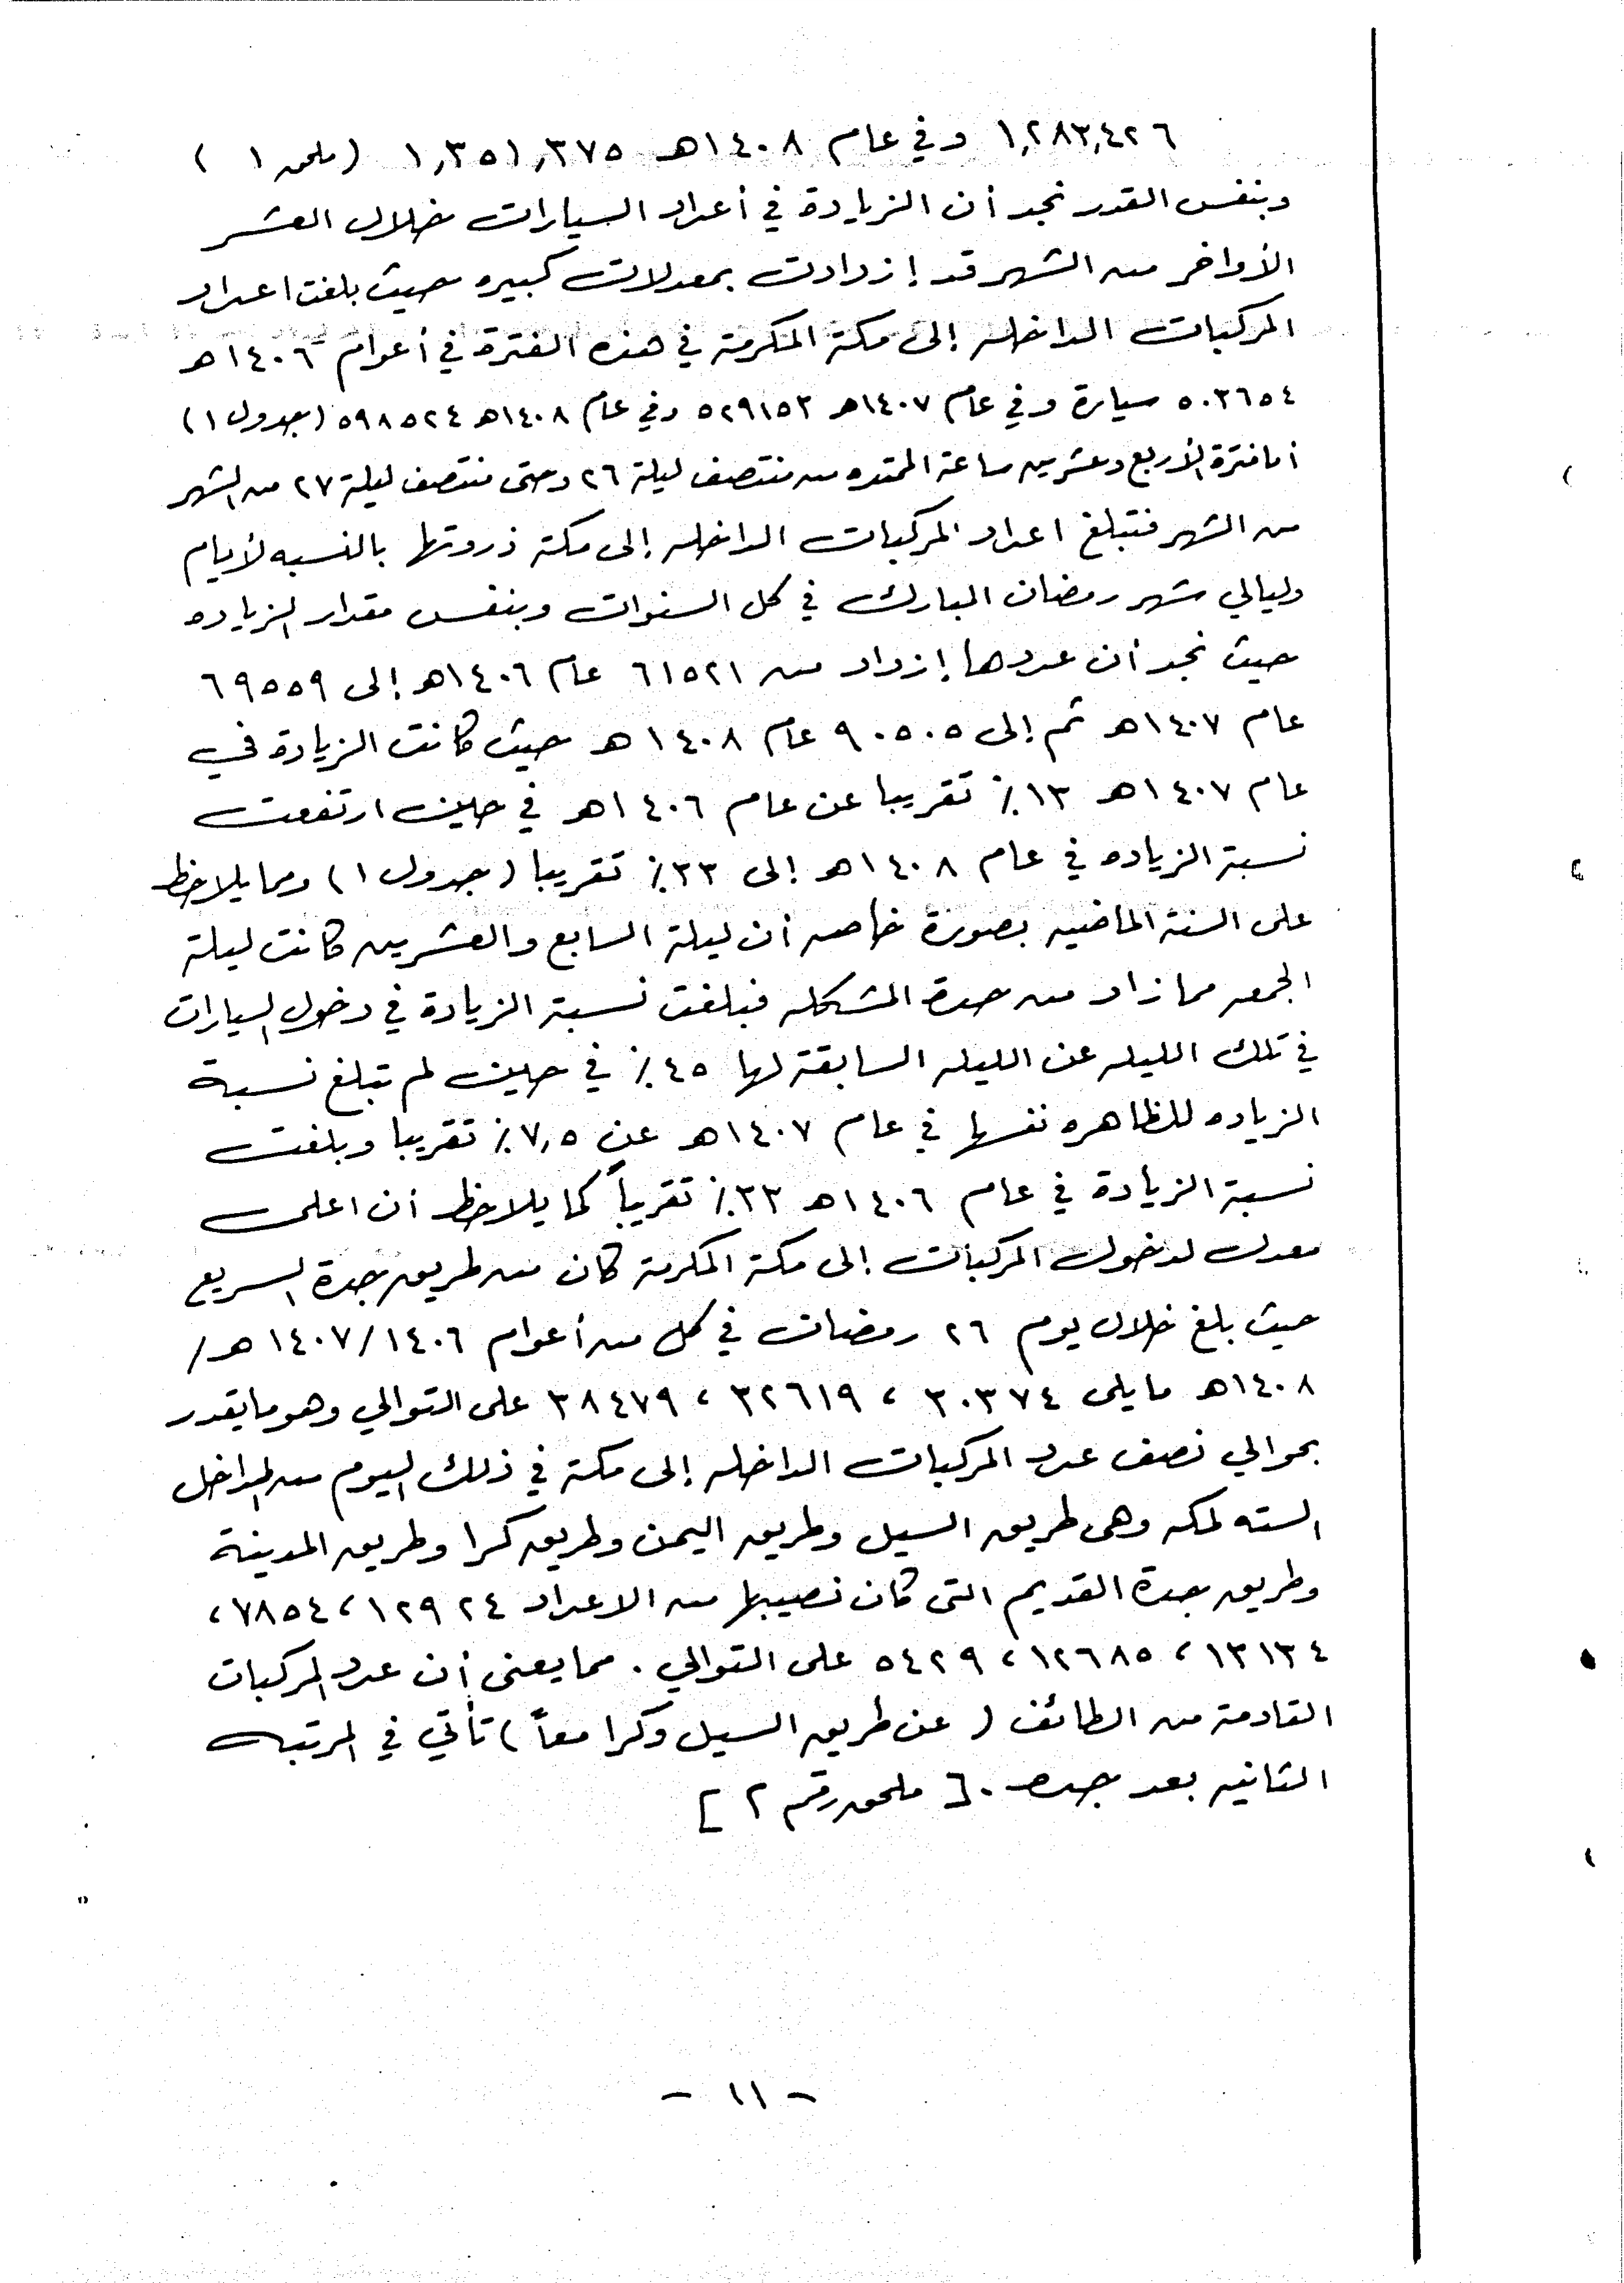 ١,٢٨٣,٤٢٦ وفي عام ١٤٠٨هـ ١,٣٥١,٣٧٥ (ملحق ١ )
وبنفس القدر نجد أن الزيادة في أعداد السيارات خلال العشر
الأواخر من الشهر قد إزدادت بمعدلات كبيره حيث بلغت اعداد
المركبات الداخله إلى مكة المكرمة في هذه الفترة في أعوام ١٤٠٦هـ
٥٠٣٦٥٤ سيارة وفي عام ١٤٠٧هـ ٥٢٩١٥٣ وفي عام ١٤٠٨هـ ٥٩٨٥٢٤ (جدول ١)
أما فترة الأربع وعشرين ساعة الممتده من منتصف ليلة ٢٦ وحتى منتصف ليلة ٢٧ من الشهر
من الشهر فتبلغ اعداد المركبات الداخله إلى مكة ذروتها بالنسبه لأيام
وليالي شهر رمضان المبارك في كل السنوات وبنفس مقدار الزياده
حيث نجد أن عددها إزداد من ٦١٥٢١ عام ١٤٠٦هـ إلى ٦٩٥٥٩
عام ١٤٠٧هـ ثم إلى ٩٠٥٠٥ عام ١٤٠٨هـ حيث كانت الزيادة في
عام ١٤٠٧هـ ١٣٪ تقريبا عن عام ١٤٠٦هـ في حين ارتفعت
نسبة الزياده في عام ١٤٠٨هـ إلى ٣٣٪ تقريبا (جدول ١) ومما يلاحظ
على السنة الماضيه بصورة خاصه أن ليلة السابع والعشرين كانت ليلة
الجمعه مما زاد من حدة المشكله فبلغت نسبة الزيادة في دخول السيارات
في تلك الليله عن الليله السابقة لها ٤٥٪ في حين لم تبلغ نسبة
الزياده للظاهره نفسها في عام ١٤٠٧هـ عن ٧,٥٪ تقريبا وبلغت
نسبة الزيادة في عام ١٤٠٦هـ ٣٣٪ تقريباً كما يلاحظ أن اعلى
معدل لدخول المركبات إلى مكة المكرمة كان من طريق جدة السريع
حيث بلغ خلال يوم ٢٦ رمضان في كل من أعوام ١٤٠٧/١٤٠٦هـ/
١٤٠٨هـ ما يلى ٣٠٣٧٤ ، ٣٢٦١٩ ، ٣٨٤٧٩ على التوالي وهو ما يقدر
بحوالي نصف عدد المركبات الداخله إلى مكة في ذلك اليوم من المداخل
السته لمكه وهى طريق السيل وطريق اليمن وطريق كرا وطريق المدينة
وطريق جدة القديم التى كان نصيبها من الاعداد ١٢٩٢٤ ، ٧٨٥٤ ،
١٣١٣٤ ، ١٢٦٨٥ ، ٥٤٢٩ على التوالي . مما يعنى أن عدد المركبات
القادمة من الطائف ( عن طريق السيل وكرا معاً ) تأتي في المرتبه
الثانيه بعد جده . [ ملحق رقم ٢ ]
- ١١ -